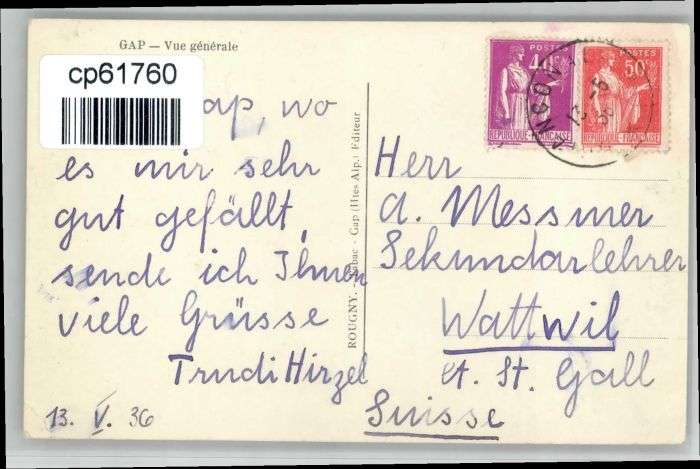 GAP — Vue générale
cp61760
Gap, wo
es mir sehr
gut gefällt,
sende ich Ihnen
viele Grüsse
Trudi Hirzel
13. V. 36
ROUGNY, Gap (Htes Alp.) Editeur
POSTES
40c
REPUBLIQUE-FRANÇAISE
POSTES
50c
REPUBLIQUE-FRANÇAISE
Herr
A. Messmer
Sekundarlehrer
Wattwil
Kt. St. Gall
Suisse